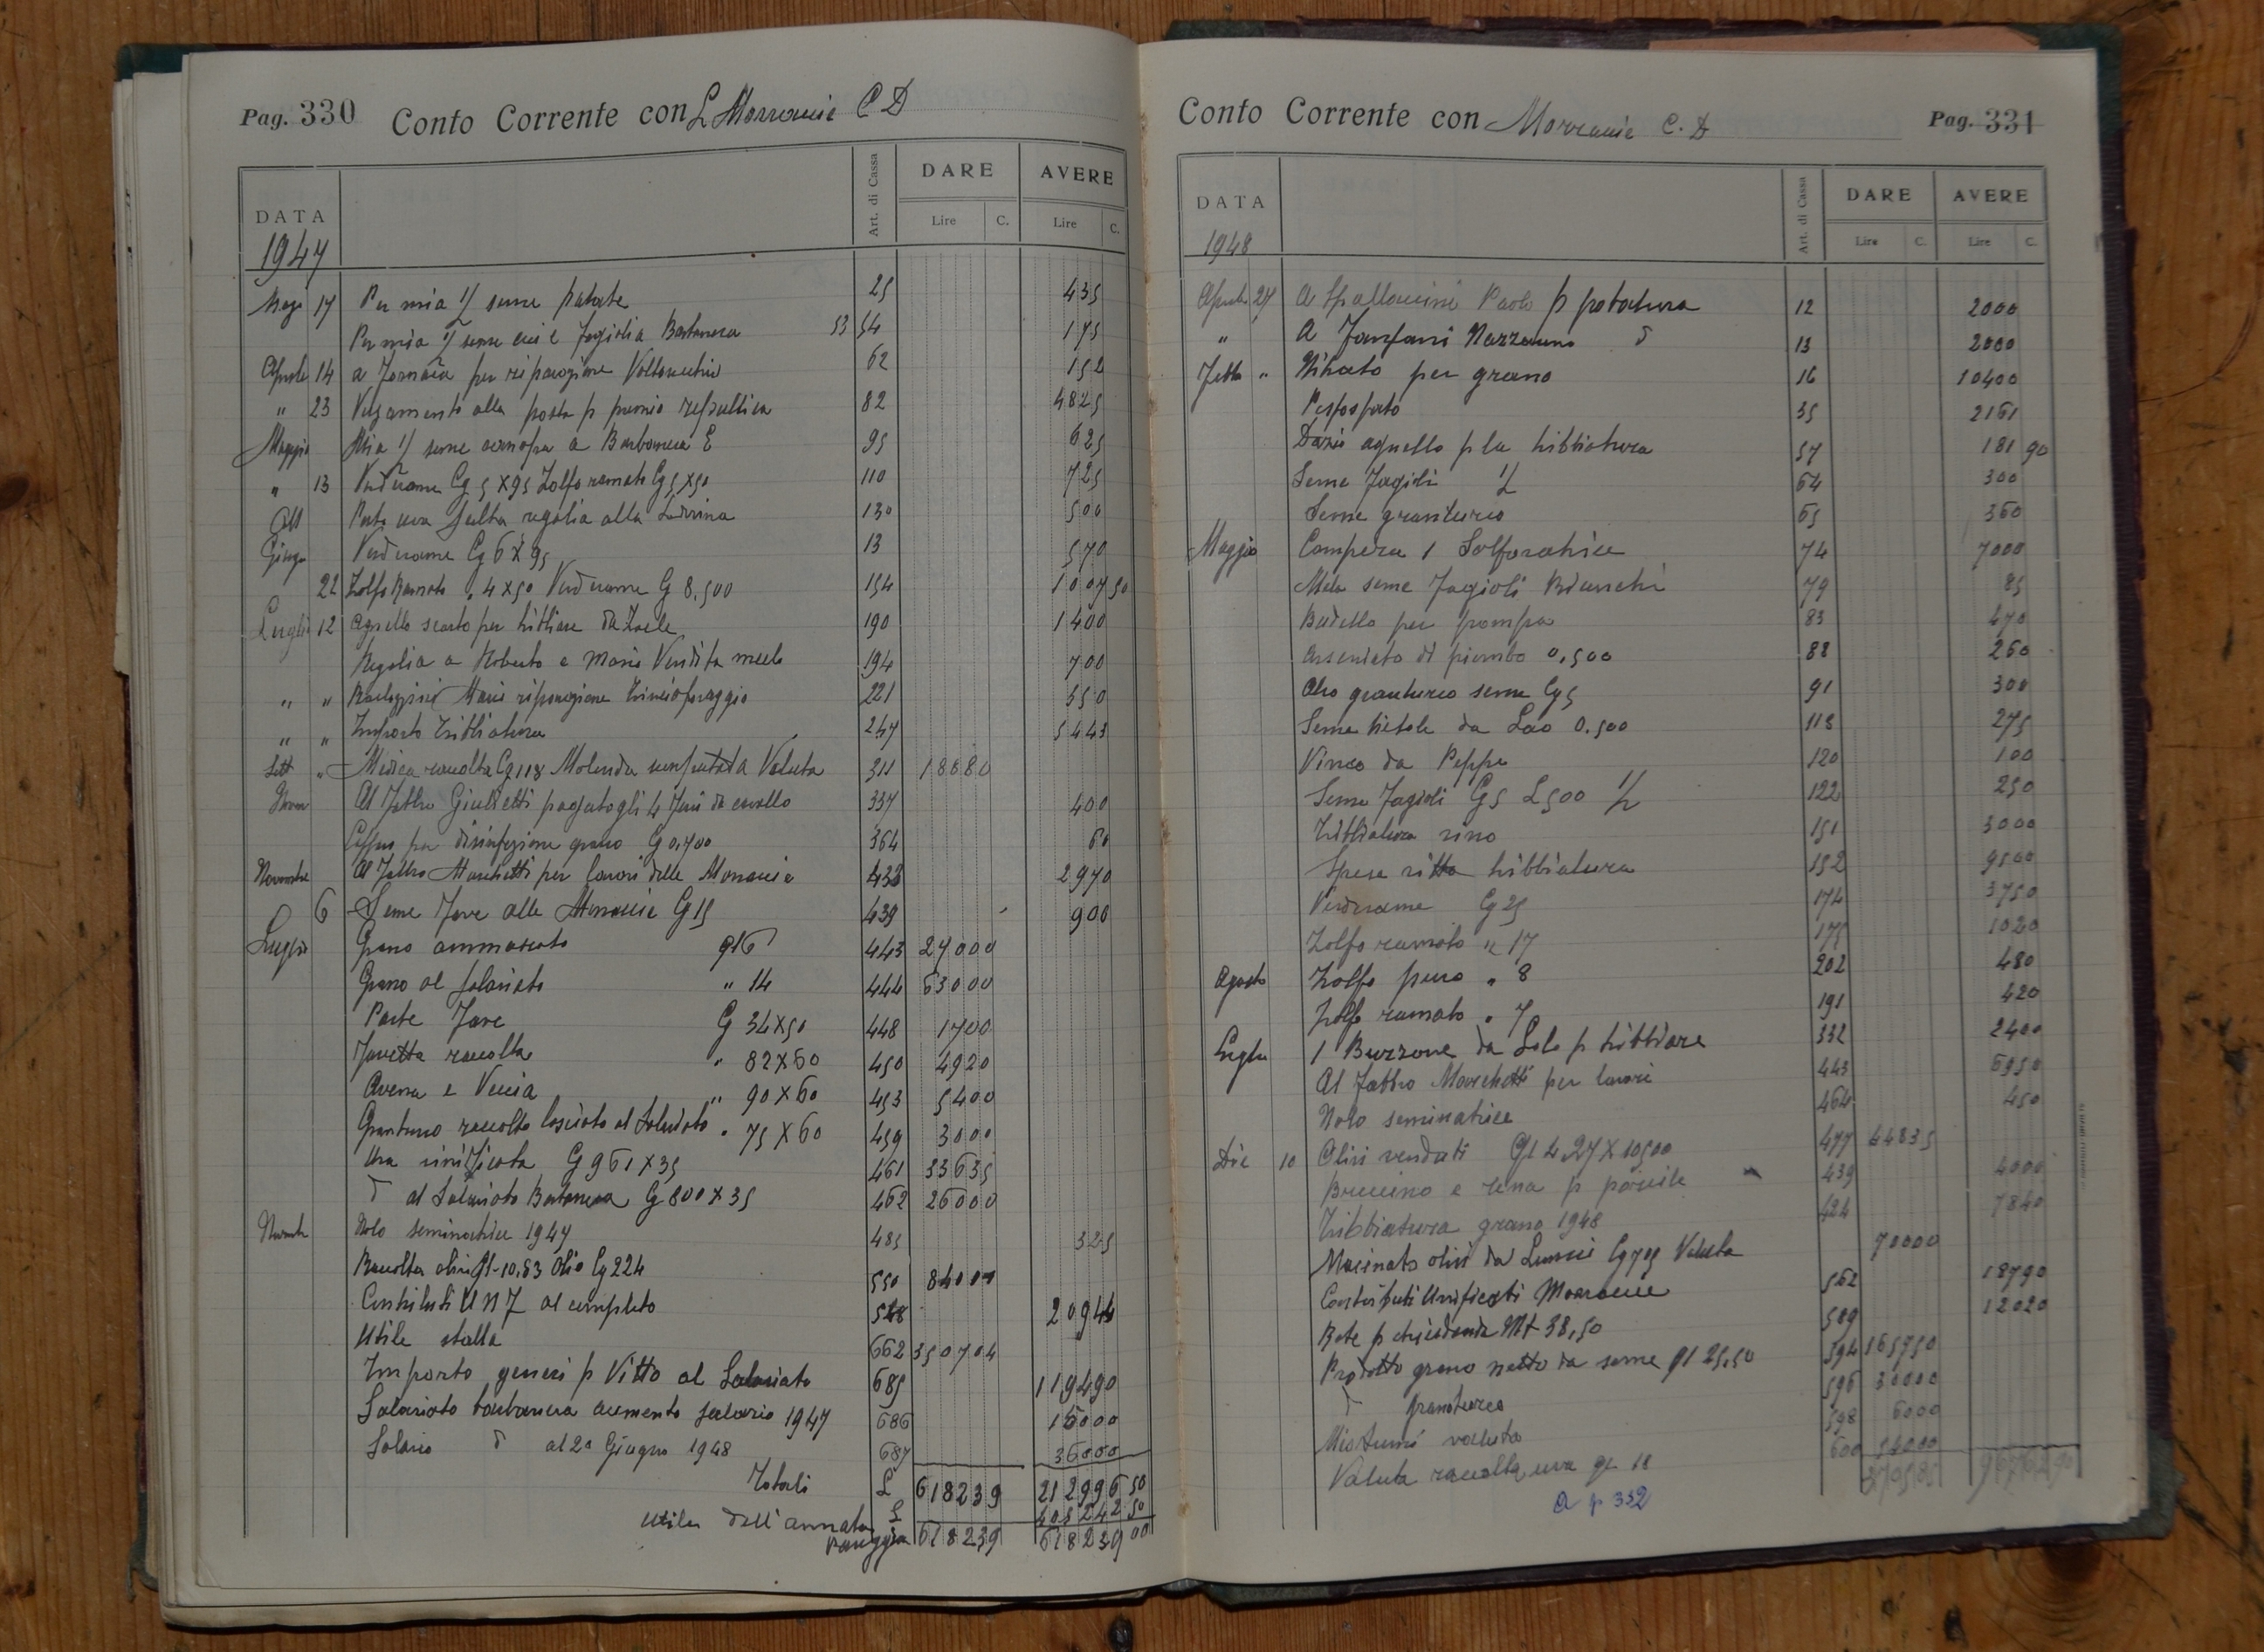 Pag. 330 Conto Corrente con C D
DATA Art. di Cassa DARE AVERE
Lire C. Lire C.
1947
17 Per mia ½ seme patate 25 435
Per mia ½ seme fagiolia Barbanera 53 54 175
Aprile 14 a per riparazione 62 152
" 23 Versamento alla posta p premio 82 4825
Maggio Mia ½ seme canapa a Barbanera E 95 625
" 13 Verderame Cg 5 X 95 Zolfo ramato Cg 5 X 50 110 725
uva regalia alla 130 500
Giugn Verderame Cg 6 X 95 13 570
22 Zolfo Ramato " 4 X 50 Verderame G 8,500 154 1007 50
Luglio 12 Agnello scarto per tribbiare da 190 1400
Regalia a Roberto e Mario Vendita 194 700
" " Mario riparazione trinciaforaggio 221 550
" " Importo tribbiatura 247 5443
Sett " Medica raccolta Cg 118 Valuta 311
Al Fabbro Giulietti pagatogli 4 ferri da cavallo 337 400
per disinfezione grano G 0,700 364 60
Novembre Al Fabbro Marchetti per lavori delle 433 2970
6 Seme Fave alle G 15 439 900
Luglio Grano ammassato ql 6 443 27000
Grano al salariato " 14 444 63000
Parte Fave G 34X50 448 1700
Favetta raccolta " 82X60 450 4920
Avena e Veccia " 90X60 453 5400
Granturco raccolto lasciato al Salariato " 75X60 459 3000
Uva vinificata G 961X35 461 33635
al Salariato Barbanera G 800X35 462 26000
Novemb Nolo seminatrice 1947 485 325
Raccolta olive Ql-10,83 Olio Cg 224 550 84000
Contributi al completo 548 20944
Utile stalla 662 350704
Importo generi p Vitto al Salariato 685 119490
Salariato barbanera aumento salario 1947 686 15000
Salario al 20 Giugno 1948 687 36000
Totali L 618239 212996 50
Utile dell'annata L 405242 50
618239 618239 00
Conto Corrente con C. D Pag. 331
DATA Art. di Cassa DARE AVERE
Lire C. Lire C.
1948
Aprile 27 A Paolo p potatura 12 2000
" A Fanfani Nazzareno 13 2000
" Nitrato per grano 16 10400
35 2161
Dazio agnello p la tribbiatura 57 181 90
Seme fagioli ½ 64 300
Seme granturco 65 360
Maggio Compera 1 Solforatrice 74 7000
Metà seme fagioli Bianchi 79 85
Budello per pompa 83 470
Arseniato di piombo 0,500 88 260
Altro granturco seme Cg 5 91 300
Seme bietole da 0,500 118 275
Vinco da Peppe 120 100
Seme fagioli G 5 L 500 ½ 122 250
Tribbiatura vino 151 3000
Spesa vitto tribbiatura 152 9500
Verderame Cg 25 174 3750
Zolfo ramato " 17 175 1020
Agosto Zolfo puro " 8 202 480
Zolfo ramato " 7 191 420
Luglio 1 da p tribbiare 332 2400
Al Fabbro Marchetti per lavori 443 6950
Nolo seminatrice 464 450
Dic 10 Olivi venduti Ql 4,27 X 10500 477 44835
e rena p porcile 439 4000
Tribbiatura grano 1948 424 7840
Macinato olivi da Cg 705 Valuta 70000
Contributi Unificati 562 18790
Rete p Mt 38,50 589 12020
Prodotto grano netto da seme ql 25,50 594 165750
granturco 596 30000
Mistumi valuta 598 6000
Valuta raccolta uva ql 18 600 54000
a p 332